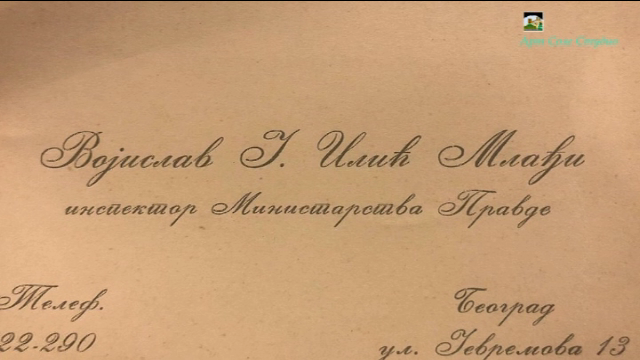 Војислав Ј. Илић Млађи
инспектор Министарства Правде
Телеф.
22-290
Београд
ул. Јевремова 13